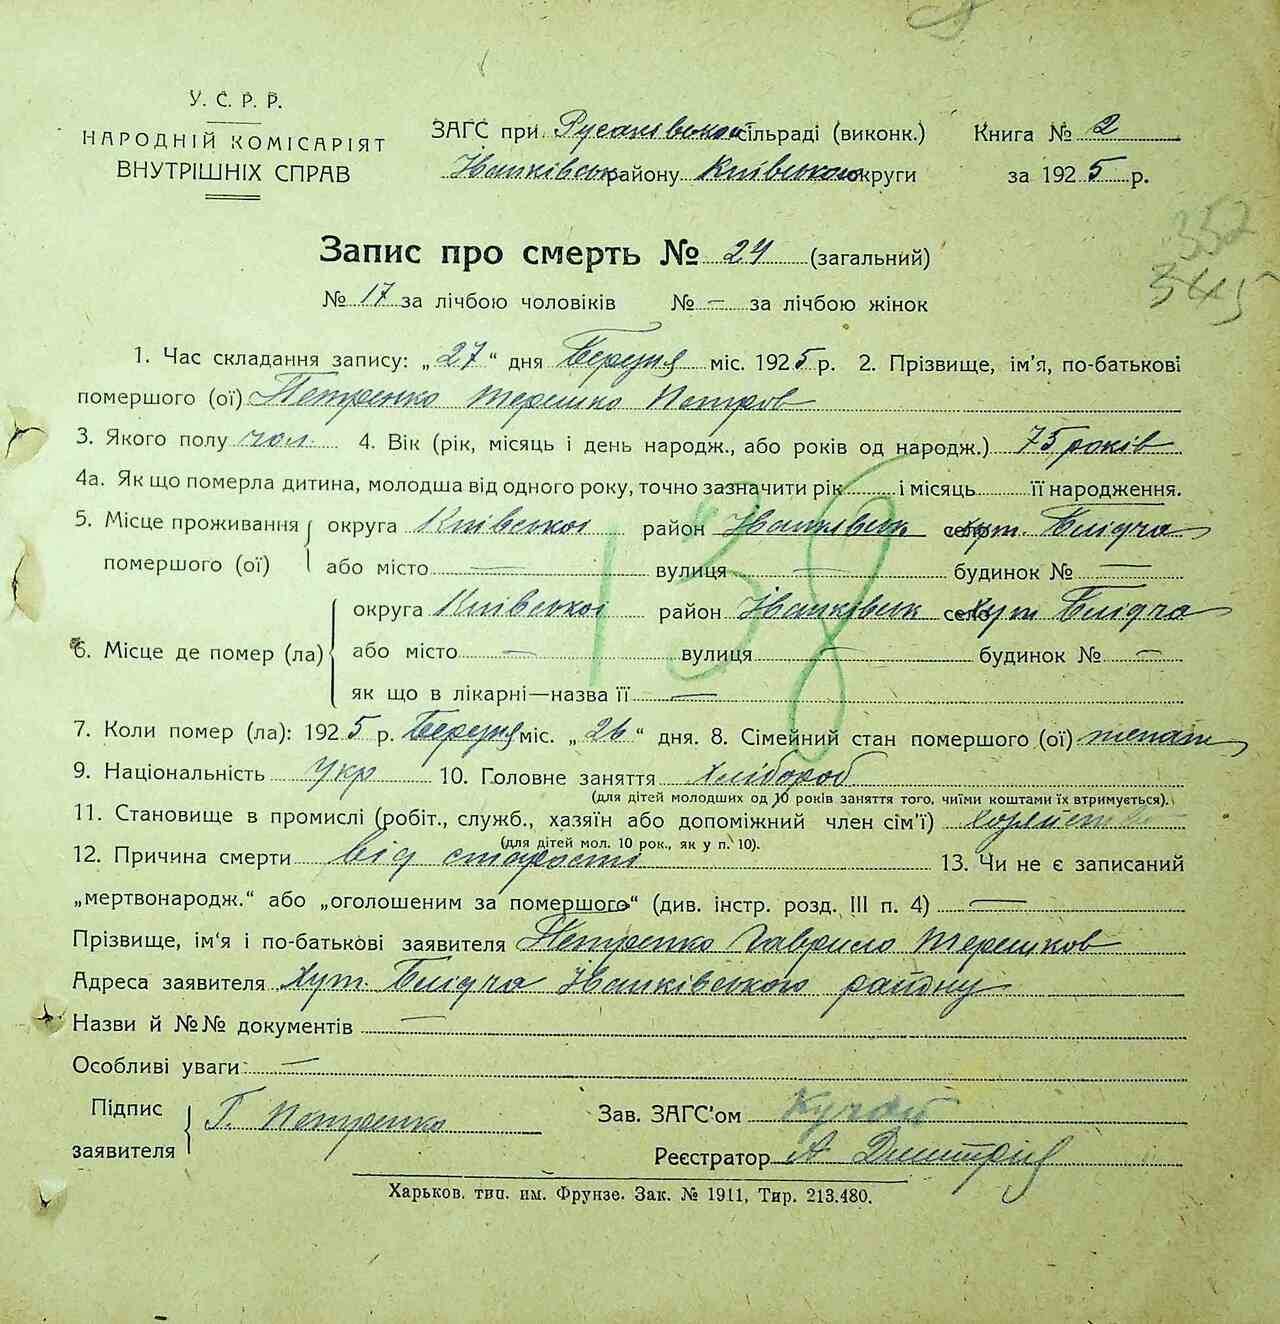 У. С. Р. Р.
НАРОДНІЙ КОМІСАРІЯТ
ВНУТРІШНІХ СПРАВ
ЗАГС при Русанівської сільраді (виконк.) Книга № 2
Іванківськ району Київської округи за 1925 р.
352
545
Запис про смерть № 24 (загальний)
№ 17 за лічбою чоловіків № — за лічбою жінок
1. Час складання запису: „27“ дня Березня міс. 1925 р. 2. Прізвище, ім'я, по-батькові
помершого (ої) Петренко Терешко Петров
3. Якого полу чол. 4. Вік (рік, місяць і день народж., або років од народж.) 75 років
4а. Як що померла дитина, молодша від одного року, точно зазначити рік і місяць її народження.
5. Місце проживання помершого (ої) округа Київської район Іванківськ село хут. Блідча
або місто — вулиця — будинок № —
138
6. Місце де помер (ла) округа Київської район Іванківськ село хут Блідча
або місто — вулиця — будинок № —
як що в лікарні—назва її —
7. Коли помер (ла): 1925 р. Березня міс. „26“ дня. 8. Сімейний стан помершого (ої) женат
9. Національність Укр 10. Головне заняття Хлібороб
(для дітей молодших од 10 років заняття того, чиїми коштами їх втримується).
11. Становище в промислі (робіт., служб., хазяїн або допоміжний член сім'ї)
(для дітей мол. 10 рок., як у п. 10).
12. Причина смерти від старости 13. Чи не є записаний
„мертвонародж.“ або „оголошеним за помершого“ (див. інстр. розд. III п. 4) —
Прізвище, ім'я і по-батькові заявителя Петренко Гаврило Терешков
Адреса заявителя Хут. Блідча Іванківського району
Назви й №№ документів —
Особливі уваги: —
Підпис заявителя Г. Петренко Зав. ЗАГС'ом
Реєстратор А Дмитрів
Харьков. тип. им. Фрунзе. Зак. № 1911, Тир. 213.480.